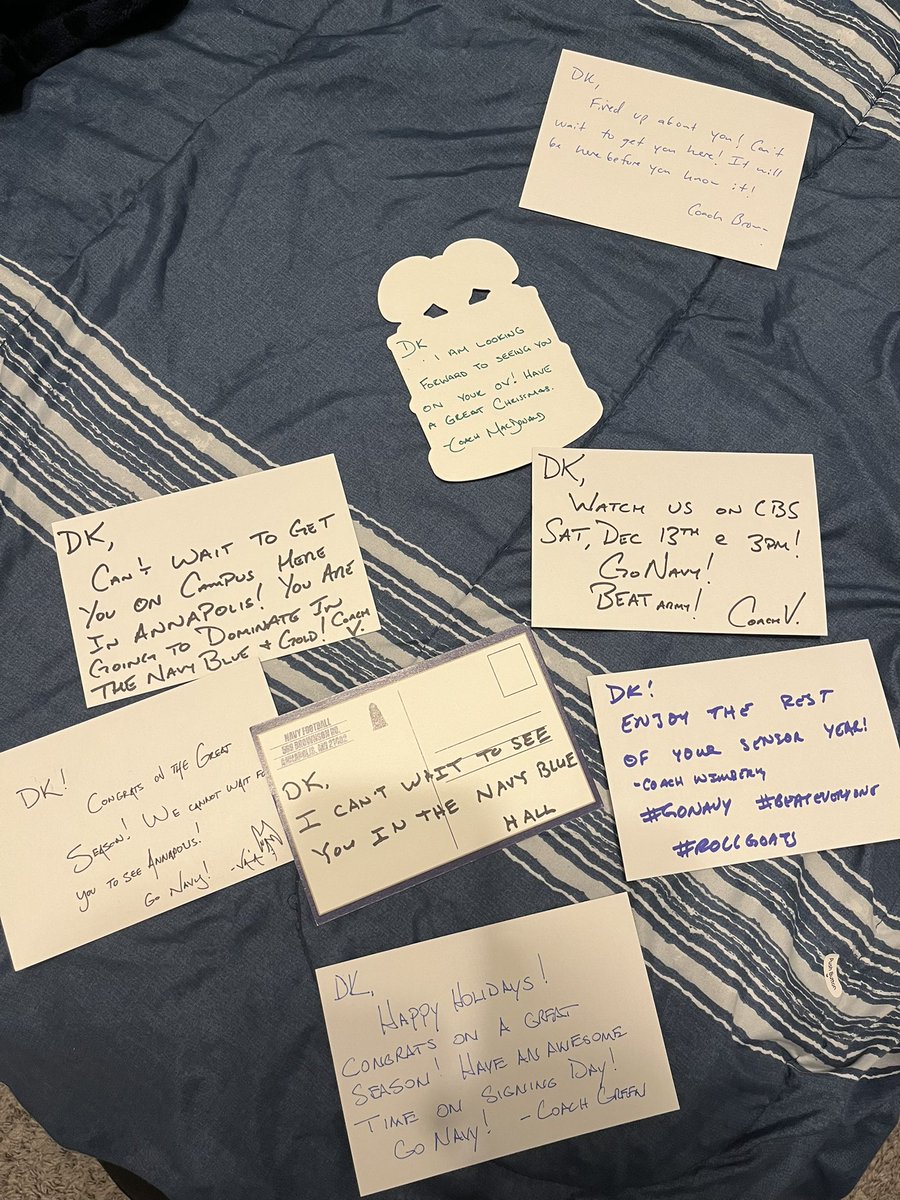 DK,
Fired up about you! Can't
wait to get you here! It will
be here before you know it!
Coach Brown
DK
I AM LOOKING
FORWARD TO SEEING YOU
ON YOUR OV! HAVE
A GREAT CHRISTMAS.
-COACH MACDONALD
DK,
CAN'T WAIT TO GET
YOU ON CAMPUS HERE
IN ANNAPOLIS! YOU ARE
GOING TO DOMINATE IN
THE NAVY BLUE + GOLD! COACH
V.
DK,
WATCH US ON CBS
SAT, DEC 13TH @ 3PM!
GO NAVY!
BEAT ARMY!
COACH V.
DK!
CONGRATS ON THE GREAT
SEASON! WE CANNOT WAIT FO
YOU TO SEE ANNAPOLIS!
GO NAVY!
NAVY FOOTBALL
ANNAPOLIS, MD 21402
DK,
I CAN'T WAIT TO SEE
YOU IN THE NAVY BLUE
HALL
DK!
ENJOY THE REST
OF YOUR SENIOR YEAR!
-COACH WIMBERLY
#GONAVY #BEATEVERYONE
#ROLLGOATS
DK,
HAPPY HOLIDAYS!
CONGRATS ON A GREAT
SEASON! HAVE AN AWESOME
TIME ON SIGNING DAY!
GO NAVY! -COACH GREEN
Push Button